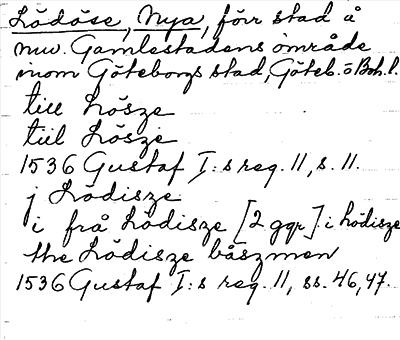 Lödöse, Nya, förr stad å
nuv. Gamlestadens område
inom Göteborgs stad, Göteb. o Boh. l.
till Lösze
till Lösze
1536 Gustaf I:s reg. 11, s. 11.
j Lödisze
i frå Lödisze [2 ggr] i Lödisze
the Lödisze båszmen
1536 Gustaf I:s reg. 11, ss. 46, 47.